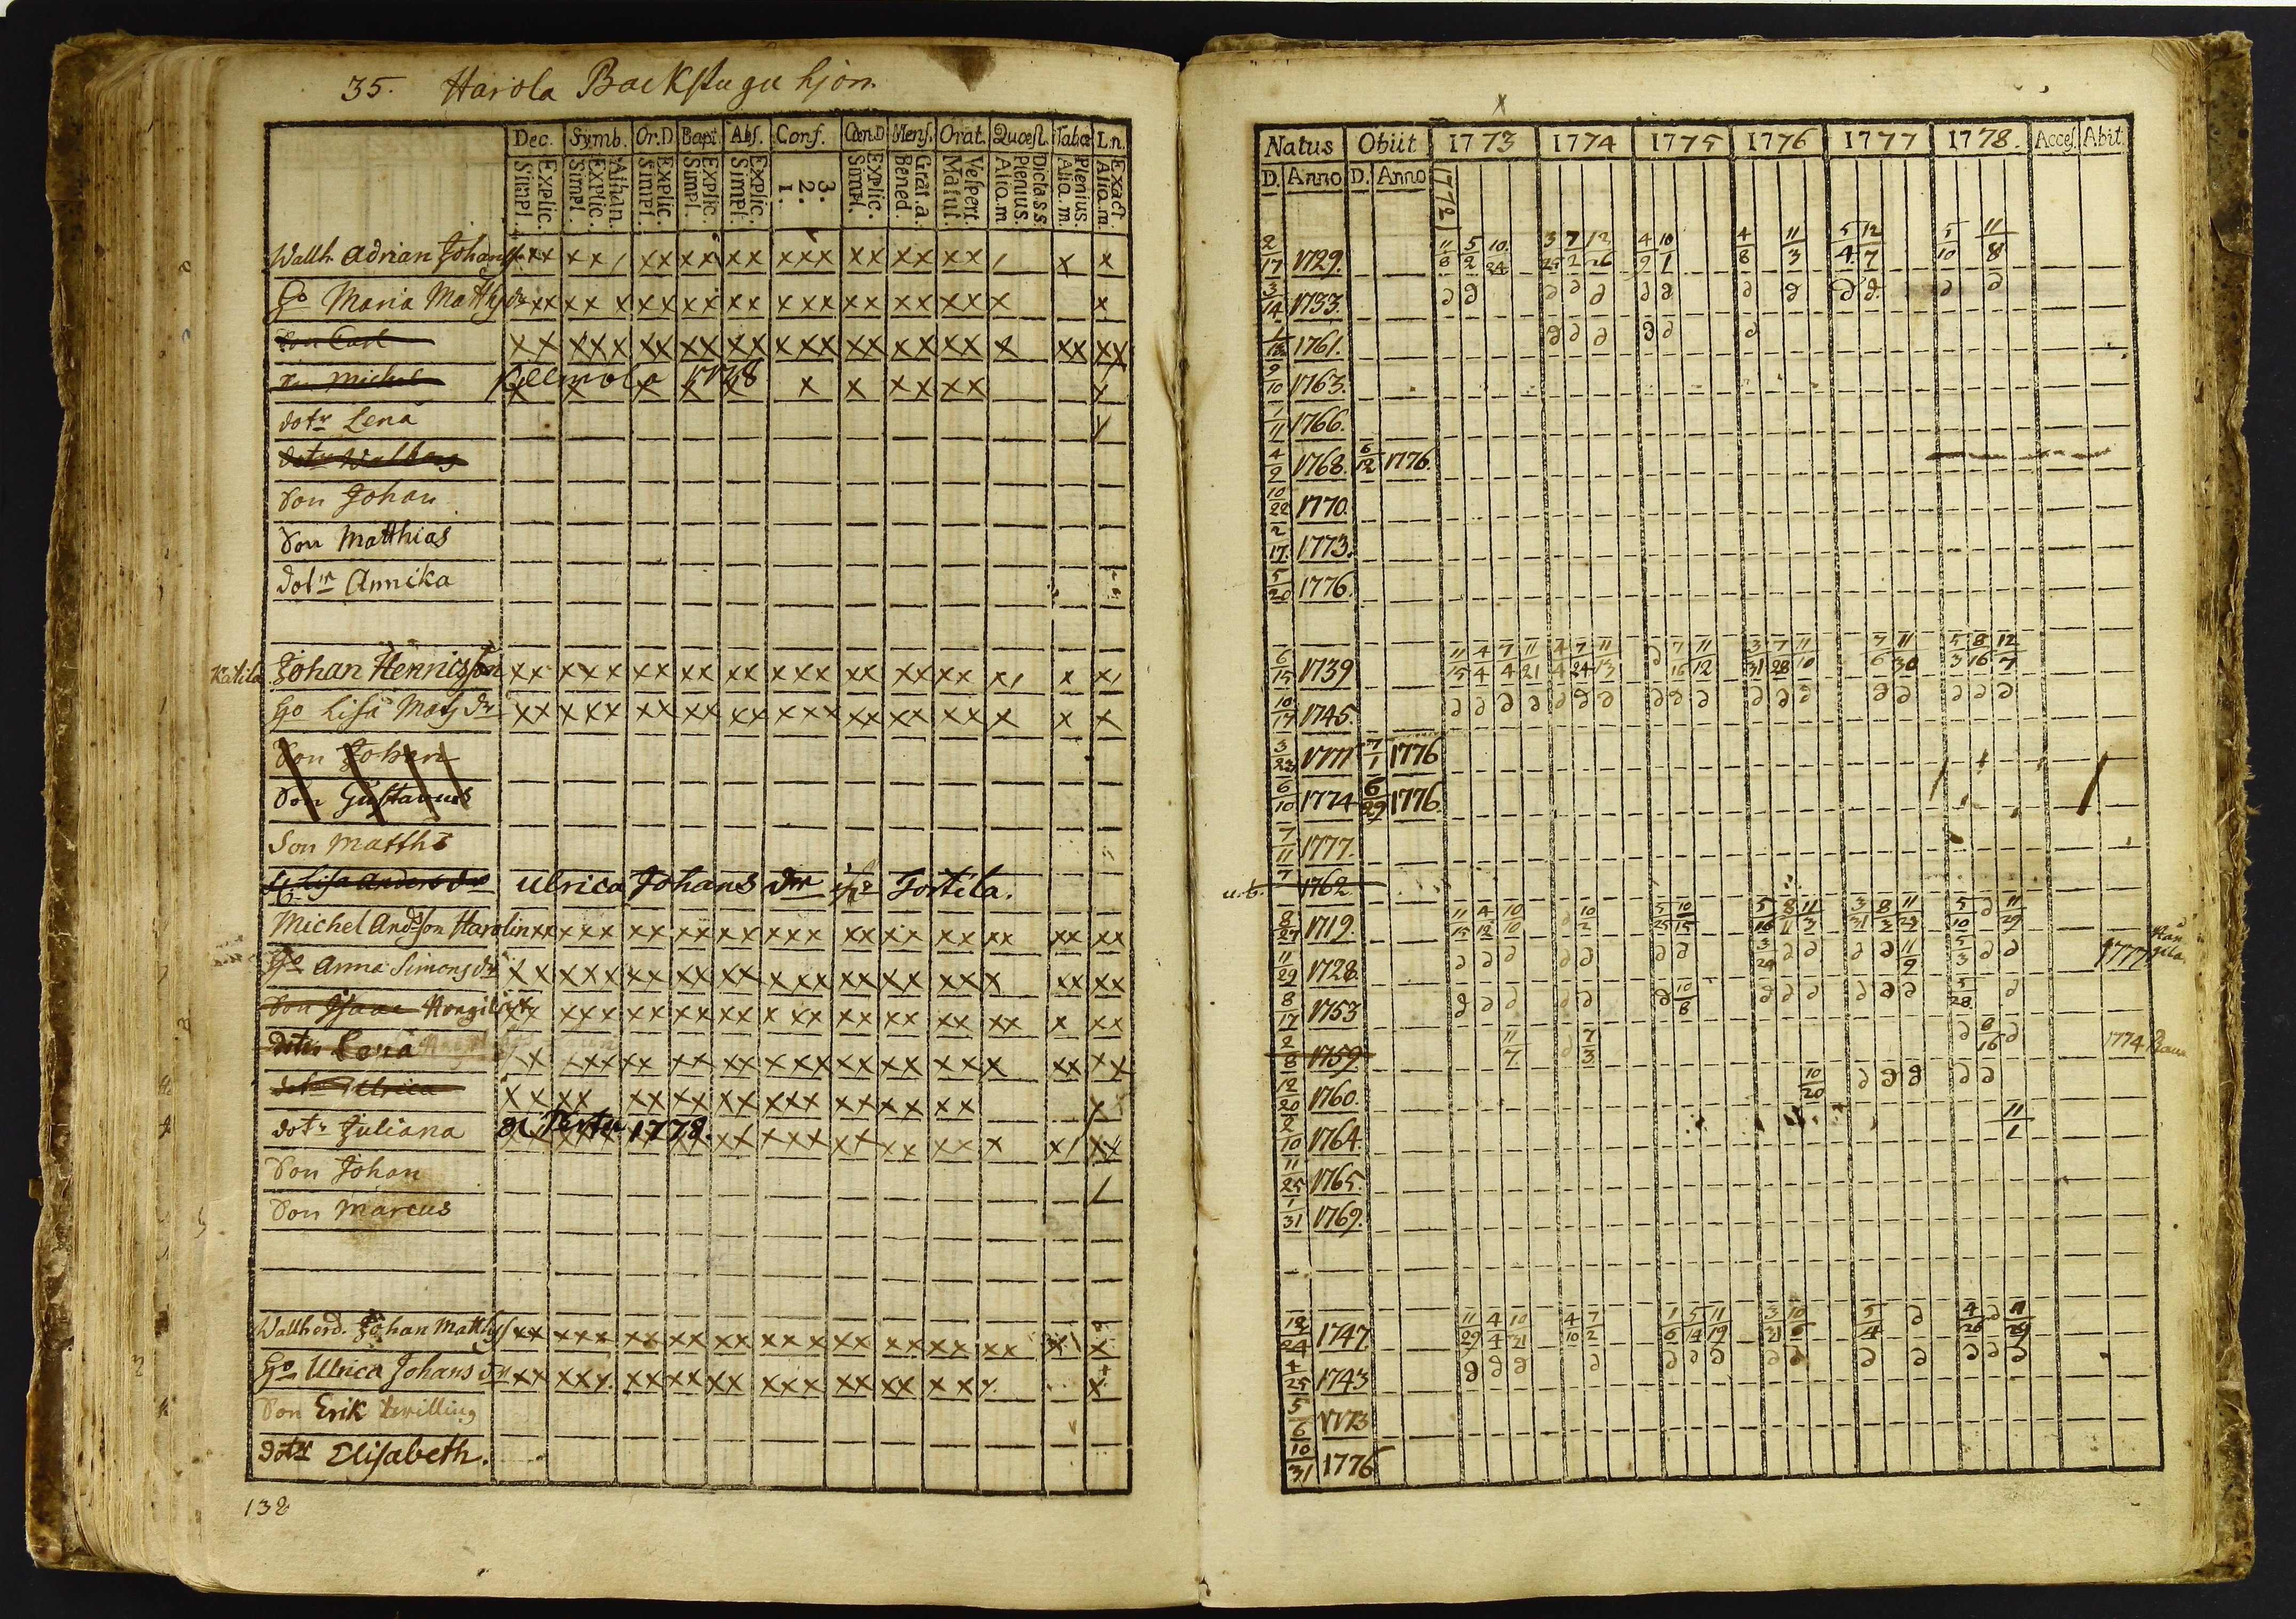 35. Harola Backstugu hjon.
Dec. Symb. Or.D. Bapt. Abs. Conf. Cœn.D. Mens. Orat. Quæst. Tabæ L.n.
Explic. Simpl. Athan. Explic. Simpl. Explic. Simpl. Explic. Simpl. Explic. Simpl. 3. 2. 1. Explic. Simpl. Grat.a. Bened. Vespert. Matut. Dicta s.s. Plenius. Alio.m. Plenius. Alio.m. Exact Alio.m.
Wallh. Adrian Johans
Ho Maria Matths dr
Son Carl
Son Michel
Dotr Lena
Dotr Walborg
Son Johan
Son Matthias
Dotr Annika
Katila Johan Hennicsson
Ho Lisa Mats dr
Son Johan
Son Gustavus
Son Matths
Lisa Anders dr Ulrica Johans dr Tortila.
Michel Andsson Harolin
Ho Anna Simons dr
Son Isaac
Dotr Lena
Dotr Ulrica
Dotr Juliana 1778.
Son Johan
Son Marcus
Wallherd. Johan Matths
Ho Ulrica Johans dr
Son Erik twilling
Dotr Elisabeth.
138
Natus Obiit 1773 1774 1775 1776 1777 1778. Acces. Abit
D. Anno D. Anno 1772
2/17 1729. 11/8 5/2 10/24 3/29 7/2 12/26 4/9 10/1 4/8 11/3 5/4 12/7 5/10 11/8
3/14 1733.
1761.
9/10 1763.
1/11 1766.
4/9 1768. 6/12 1776.
10/22 1770.
2/17 1773.
5/20 1776.
6/15 1739 11/15 4/4 7/4 11/21 4/4 7/24 11/13 7/16 11/12 3/31 7/28 11/10 7/6 11/30 5/3 8/16 12/7
10/17 1745.
3/23 1771 7/1 1776
6/10 1774 6/29 1776.
7/11 1777.
u.b. 7 1762
8/27 1719. 11/15 4/12 10/10 10/2 5/25 10/15 5/16 8/11 11/3 3/31 8/3 11/23 5/10 11/29
11/29 1728. 3/24 11/9 5/3 1777
8/17 1753 10/8 5/28
2/8 1759. 11/7 7/3 8/16 1774
12/20 1760. 10/20
2/10 1764. 11/1
11/25 1765.
1/31 1769.
12/24 1747. 11/29 4/4 10/31 4/10 7/2 1/6 5/14 11/19 3/31 10/6 5/4 4/26 11/29
4/25 1743
5/6 1773
10/31 1776